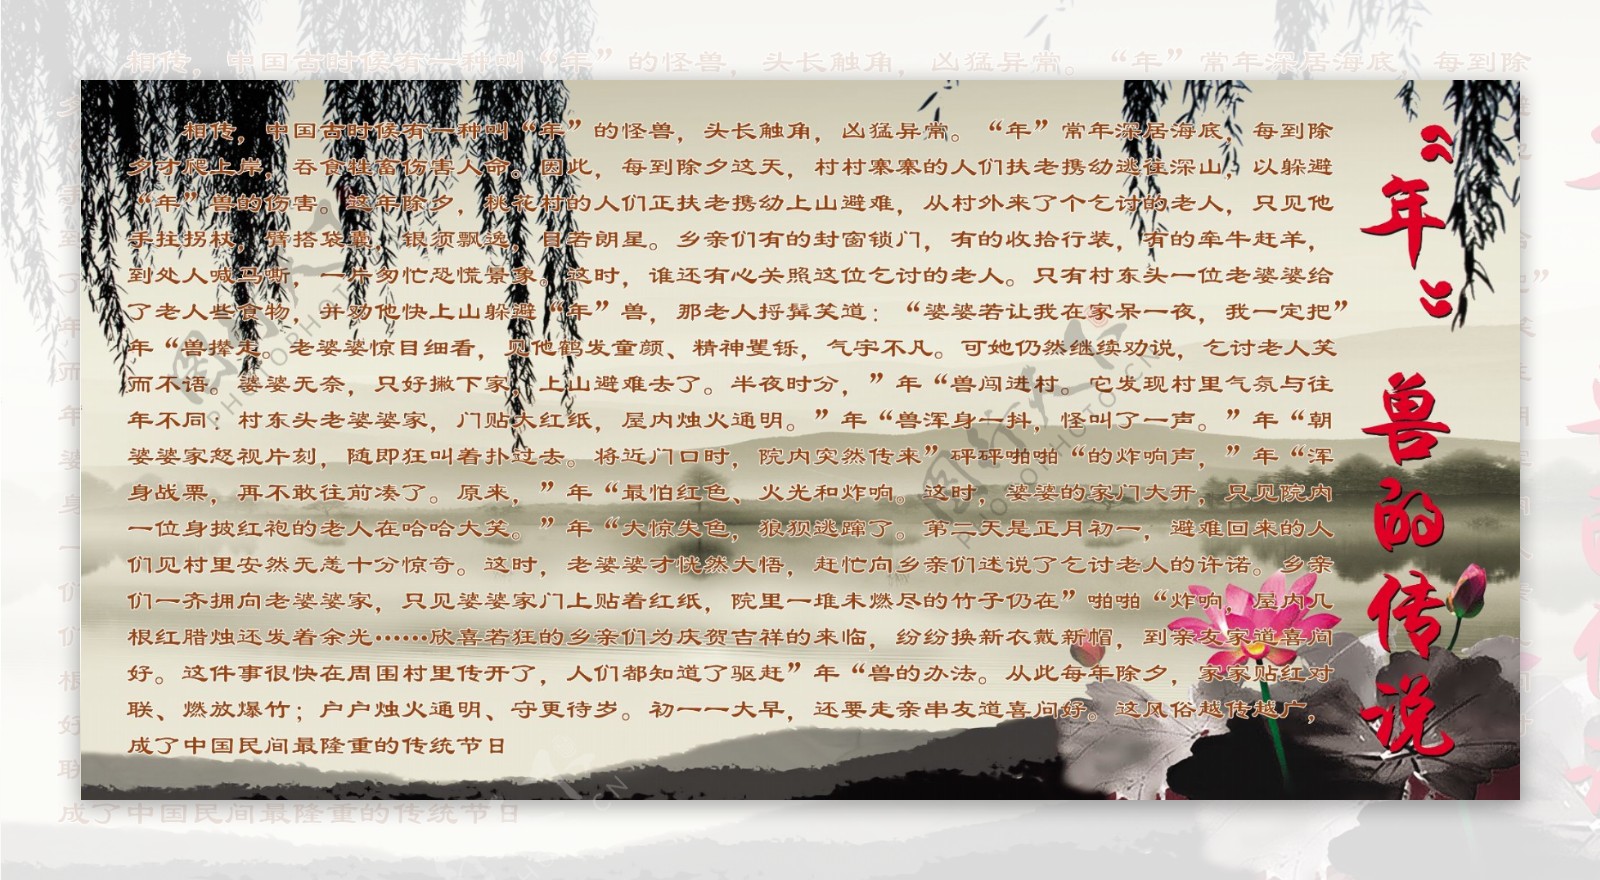 《年》兽的传说
相传，中国古时候有一种叫“年”的怪兽，头长触角，凶猛异常。“年”常年深居海底，每到除
夕才爬上岸，吞食牲畜伤害人命。因此，每到除夕这天，村村寨寨的人们扶老携幼逃往深山，以躲避
“年”兽的伤害。这年除夕，桃花村的人们正扶老携幼上山避难，从村外来了个乞讨的老人，只见他
手拄拐杖，臂搭袋囊，银须飘逸，目若朗星。乡亲们有的封窗锁门，有的收拾行装，有的牵牛赶羊，
到处人喊马嘶，一片匆忙恐慌景象。这时，谁还有心关照这位乞讨的老人。只有村东头一位老婆婆给
了老人些食物，并劝他快上山躲避“年”兽，那老人捋髯笑道：“婆婆若让我在家呆一夜，我一定把”
年“兽撵走。老婆婆惊目细看，见他鹤发童颜、精神矍铄，气宇不凡。可她仍然继续劝说，乞讨老人笑
而不语。婆婆无奈，只好撇下家，上山避难去了。半夜时分，”年“兽闯进村。它发现村里气氛与往
年不同：村东头老婆婆家，门贴大红纸，屋内烛火通明。”年“兽浑身一抖，怪叫了一声。”年“朝
婆婆家怒视片刻，随即狂叫着扑过去。将近门口时，院内突然传来”砰砰啪啪“的炸响声，”年“浑
身战栗，再不敢往前凑了。原来，”年“最怕红色、火光和炸响。这时，婆婆的家门大开，只见院内
一位身披红袍的老人在哈哈大笑。”年“大惊失色，狼狈逃蹿了。第二天是正月初一，避难回来的人
们见村里安然无恙十分惊奇。这时，老婆婆才恍然大悟，赶忙向乡亲们述说了乞讨老人的许诺。乡亲
们一齐拥向老婆婆家，只见婆婆家门上贴着红纸，院里一堆未燃尽的竹子仍在”啪啪“炸响，屋内几
根红腊烛还发着余光……欣喜若狂的乡亲们为庆贺吉祥的来临，纷纷换新衣戴新帽，到亲友家道喜问
好。这件事很快在周围村里传开了，人们都知道了驱赶”年“兽的办法。从此每年除夕，家家贴红对
联、燃放爆竹；户户烛火通明、守更待岁。初一一大早，还要走亲串友道喜问好。这风俗越传越广，
成了中国民间最隆重的传统节日